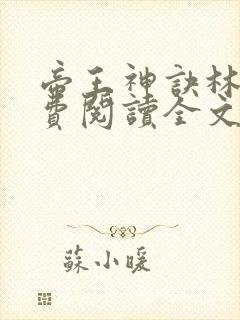 帝王神訣林
費閱讀全文
蘇小暖